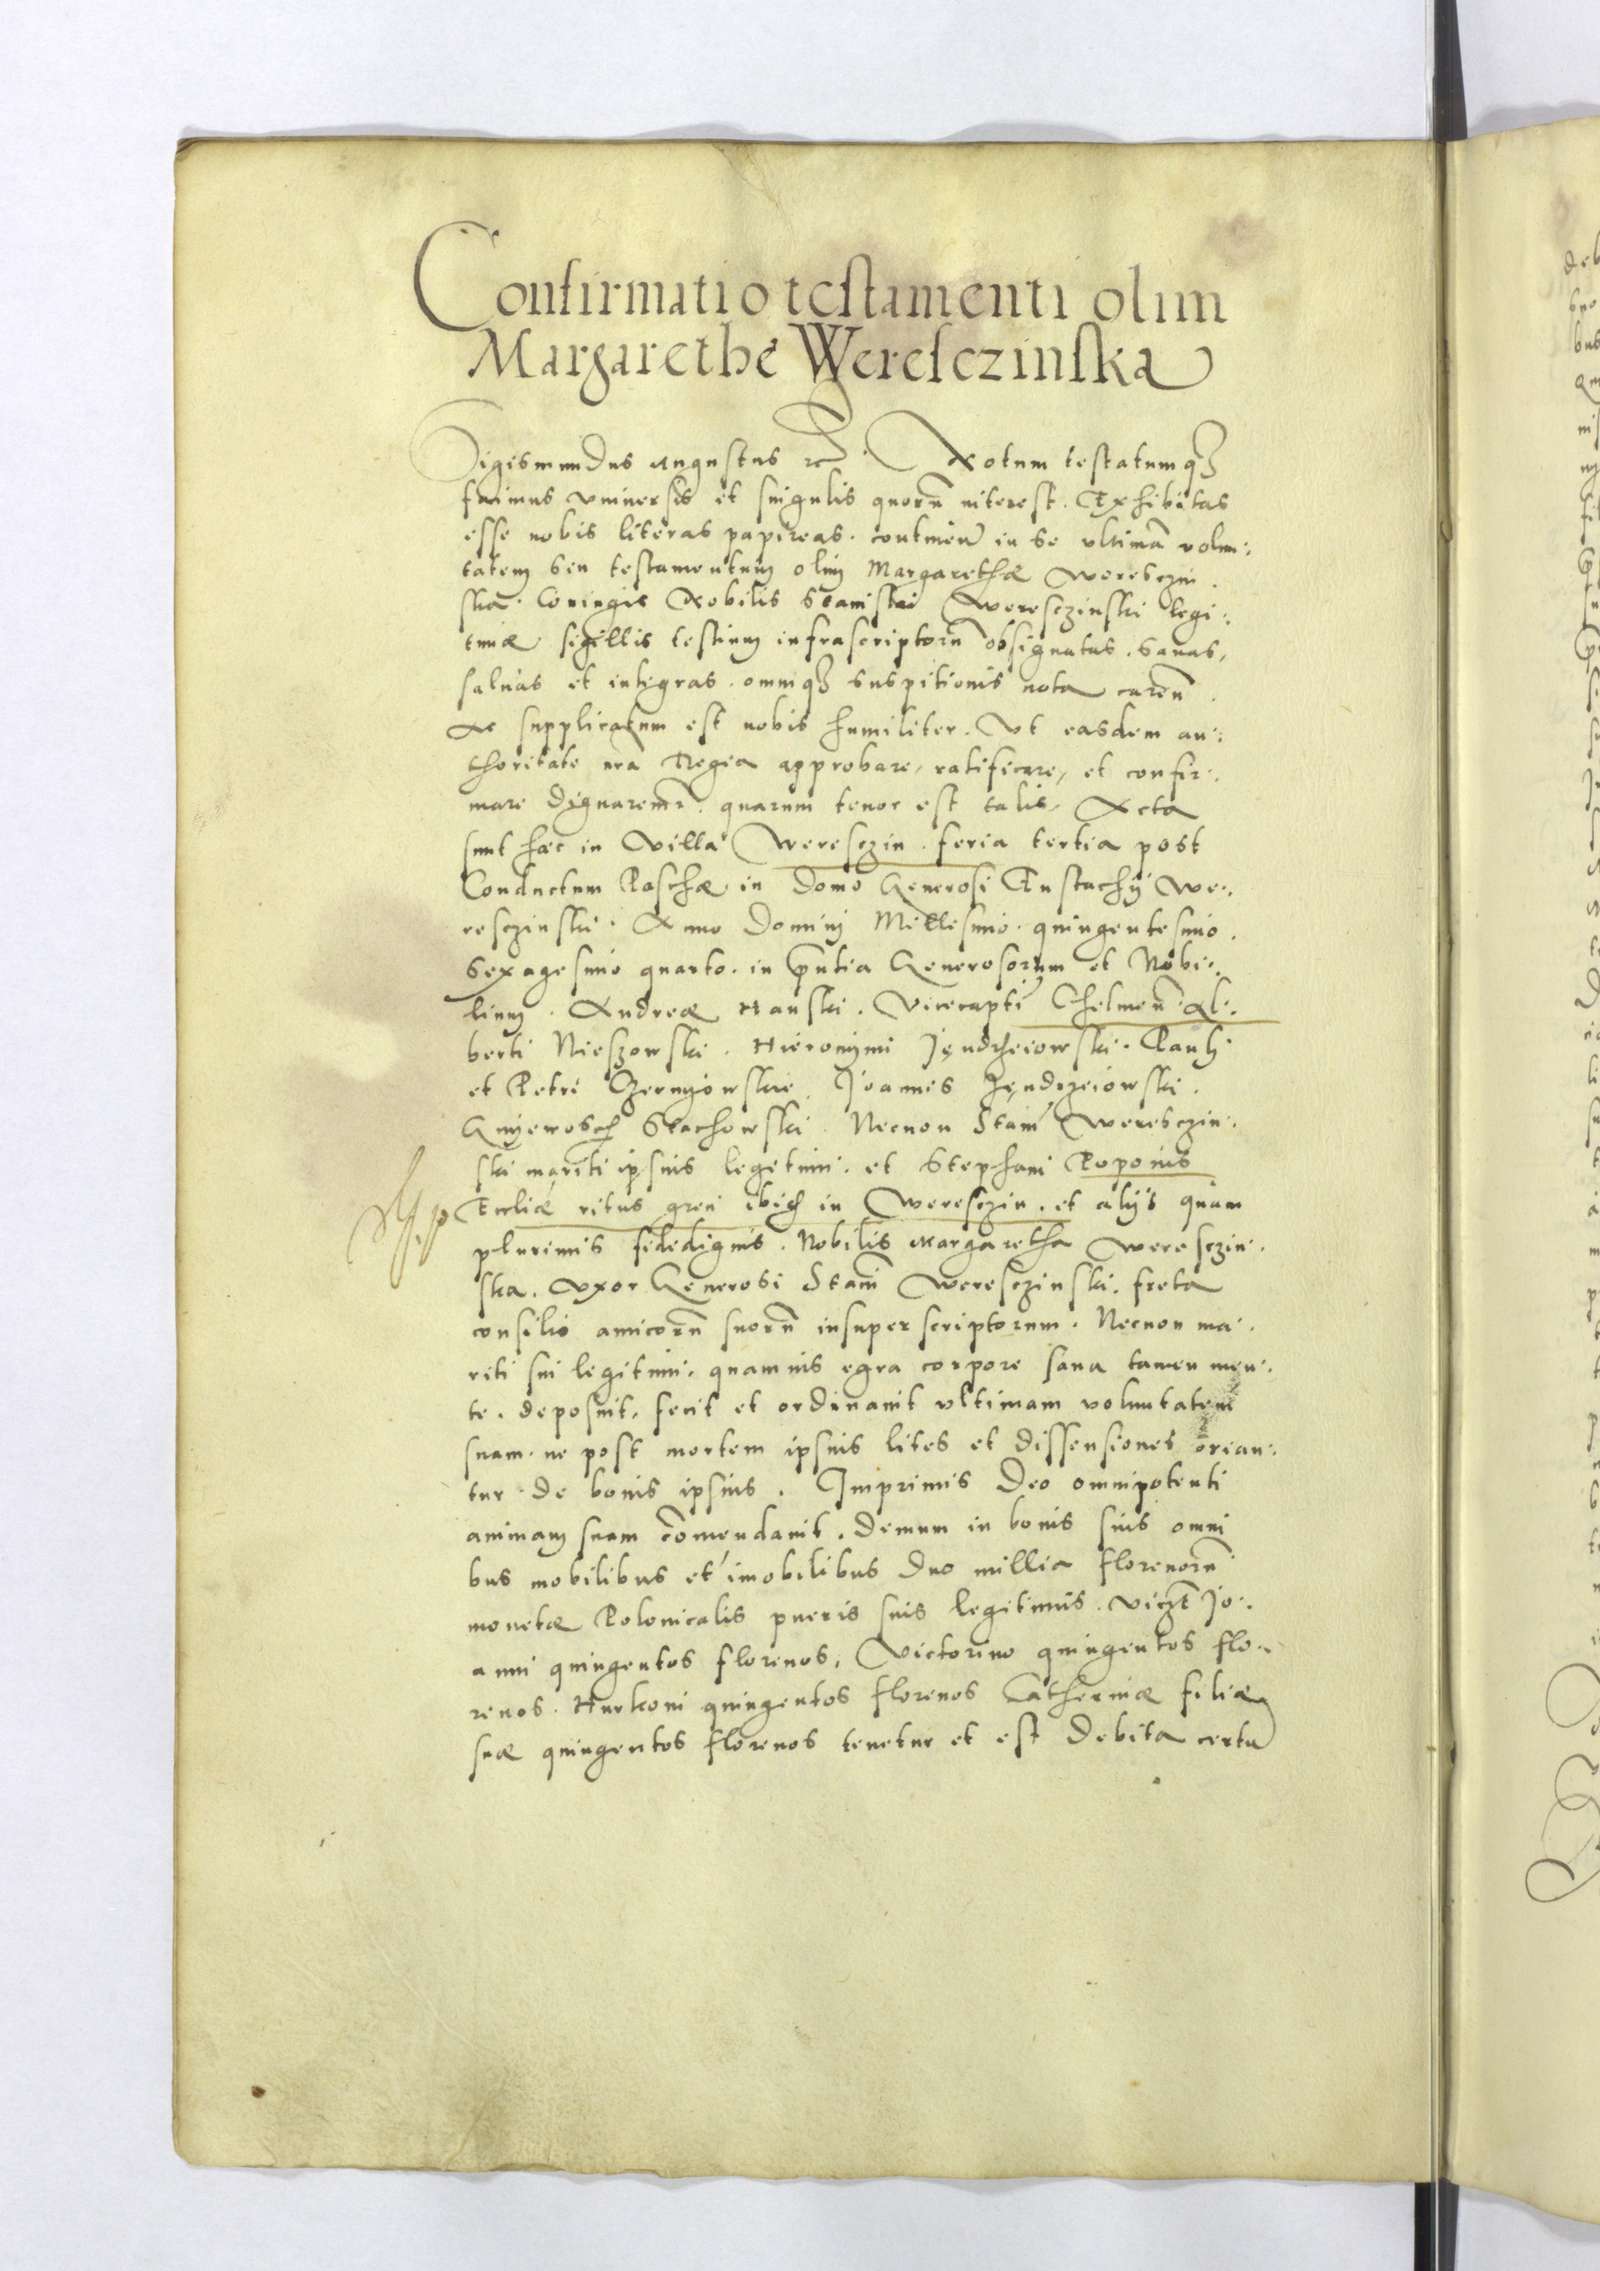 Confirmatio testamenti olim
Margarethe Weresczinska
Sigismundus Augustus etc. Notum testatumqꝫ
facimus vniuersis et singulis quorū interest. Exhibitas
esse nobis literas papireas. contineñ in se vltimā volun:
tatem seu testamentum olim Margarethæ Weresczin.
skæ. Coniugis Nobilis Stanislai Weresczinski legi:
timæ sigillis testium infrascriptorū obsignatas. sanas,
saluas et integras. omniqꝫ suspitionis nota careñ.
Ac supplicatum est nobis humiliter. Vt easdem au:
thoritate nra Regia approbare, ratificare, et confir:
mare dignaremr. quarum tenor est talis. Acta
sunt hæc in Villa Weresczin. feria tertia post
Conductum Paschæ in domo Generosi Eustachij We:
resczinski. Anno Domini Millesimo. quingentesimo.
Sexagesimo quarto. in pñtia Generosorum et Nobi:
lium. Andreæ Hanski. Vicecaptī Chelmeñ. Al:
berti Nieszowski. Hieronimi Jędrzeiowski. Pauli
et Petri Czernyowskie. Joannis Jędrzeiowski.
Gnyewosch Stachowski. Necnon Stanī Weresczin:
ski mariti ipsius legitimi. et Stephani Poponis
Eccliæ ritus greci ibidē in Weresczin. et alijs quam
plurimis fidedignis. Nobilis Margaretha Weresczin:
ska. Vxor Generosi Stanī Weresczinski. freta
consilio amicorū suorū insuper scriptorum. Necnon ma:
riti sui legitimi. quamuis egra corpore sana tamen men:
te. deposuit, fecit et ordinauit vltimam voluntatem
suam. ne post mortem ipsius lites et dissensiones orian:
tur de bonis ipsius. Imprimis Deo omnipotenti
animam suam cōmendauit. demum in bonis suis omni
bus mobilibus et imobilibus duo millia florenorū
monetæ Polonicalis pueris suis legitimis. viczt Jo:
anni quingentos florenos, Victorino quingentos flo:
renos. Hurkoni quingentos florenos Catherinæ filiæ
suæ quingentos florenos tenetur et est debita certa